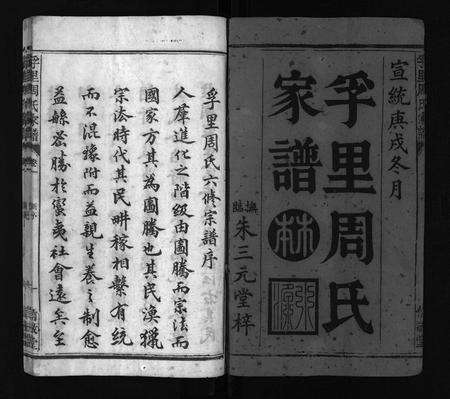 宣統庚戌冬月
孚里周氏
家譜
撫臨
朱三元堂梓
孚里周氏六修宗譜序
人羣進化之階級由圖騰而宗法而
國家方其為圖騰也其民漁獵
宗法時代其民畊稼相繫有統
而不混據附而益親生養之制愈
益繇密勝於蠻夷社會遠矣至
孚里周氏家譜